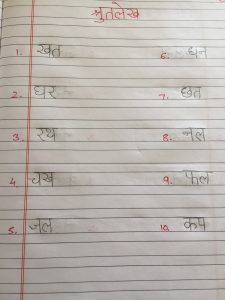 श्रुतलेख
1. खत
2. घर
3. रथ
4 चख
5. जल
6. धन
7. छत
8. नल
9. फल
10. कप